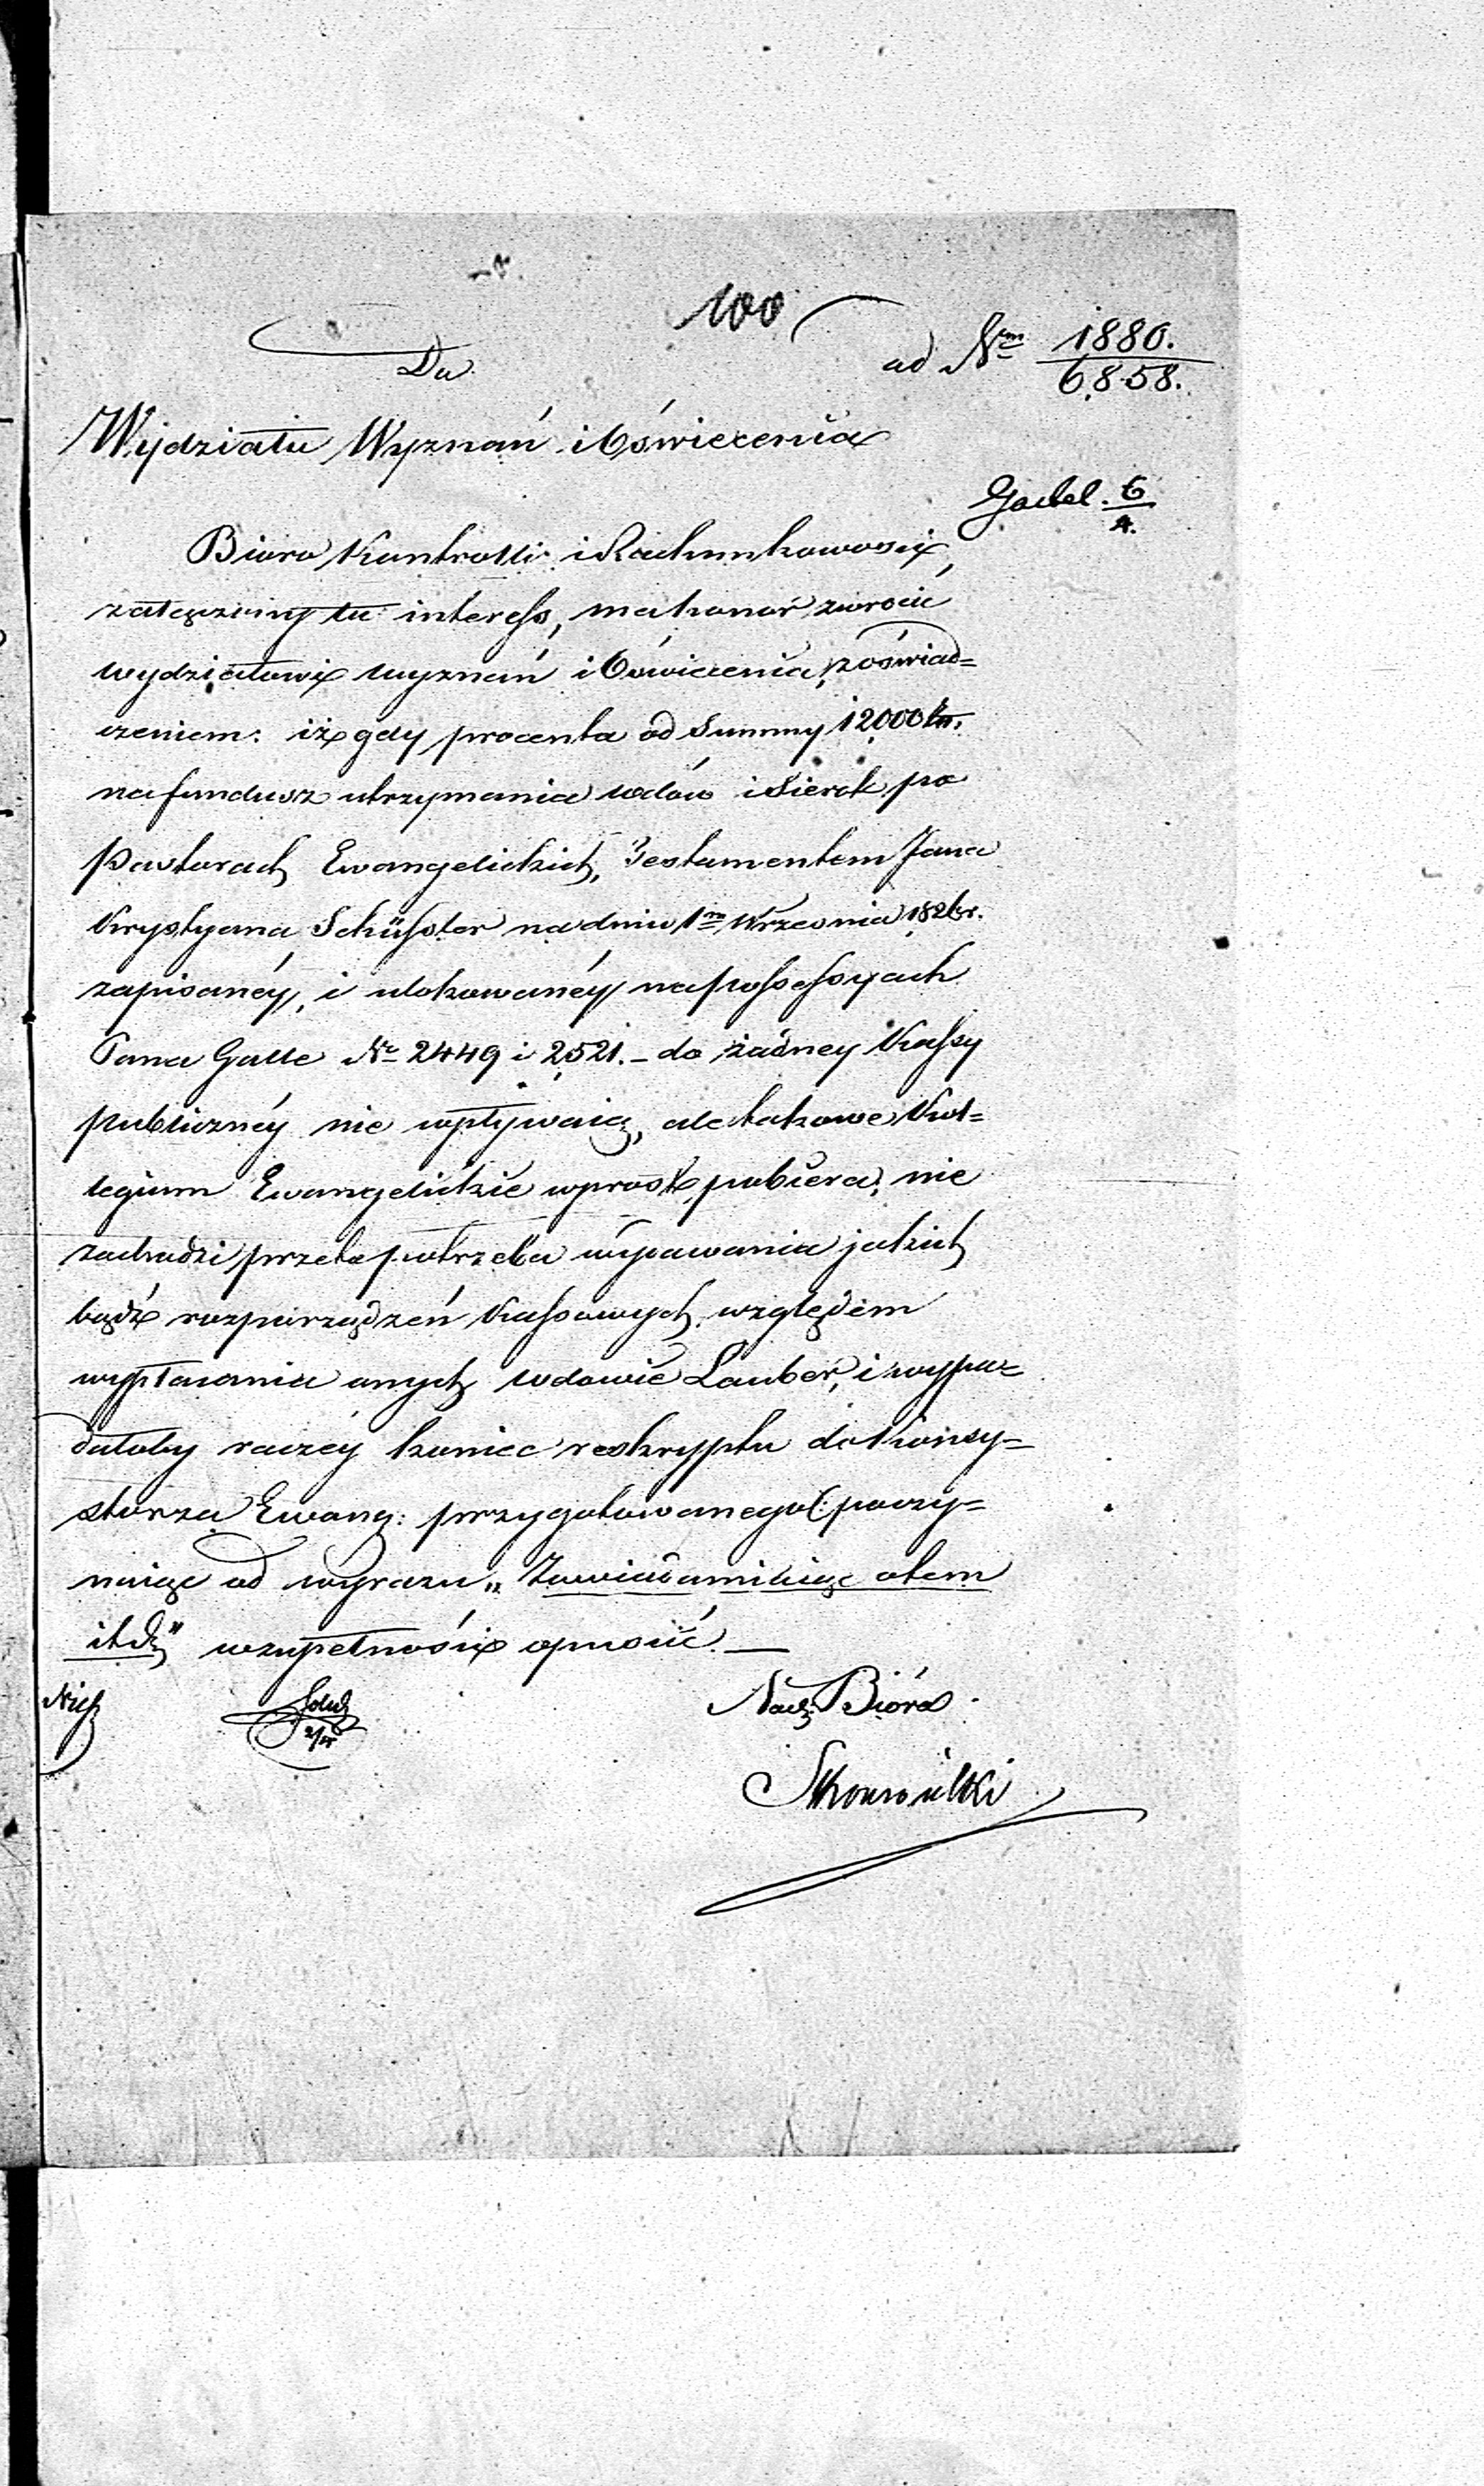 100
ad Nrm 1880.
6858.
Do
Wydziału Wyznań i Oświecenia
6
4.
Bióro Kontrolli i Rachunkowości,
załączony tu interess, ma honor zwrocić
wydziałowi wyznań i Oświecenia, z oświad=
czeniem: iż gdy procenta od Summy 12000
na fundusz utrzymania wdów i Sierot po
Pastorach Ewangelickich, Testamentem Jana
Krystyana Schüssler na dniu 1m Września 182 r.
zapisanéy, i ulokowanéy na possessyach
Pana Galle No 2449 i 2521. – do żadney Kassy
publicznéy nie wpływaią, ale takowe Kol=
legium Ewangelickie wprost pobiera, nie
zachodzi przeto potrzeba wydawania jakich
bądź rozporządzeń Kassowych względem
wypłacania onych wdowie Lauber, i wypa=
dałoby raczéy koniec reskryptu do Konsy=
storza Ewang: przygotowanego (: poczy=
naiąc od wyrazu „Zawiadamiaiąc o tem
i t d” w zupełności opuścić. —
Nacz: Bióra